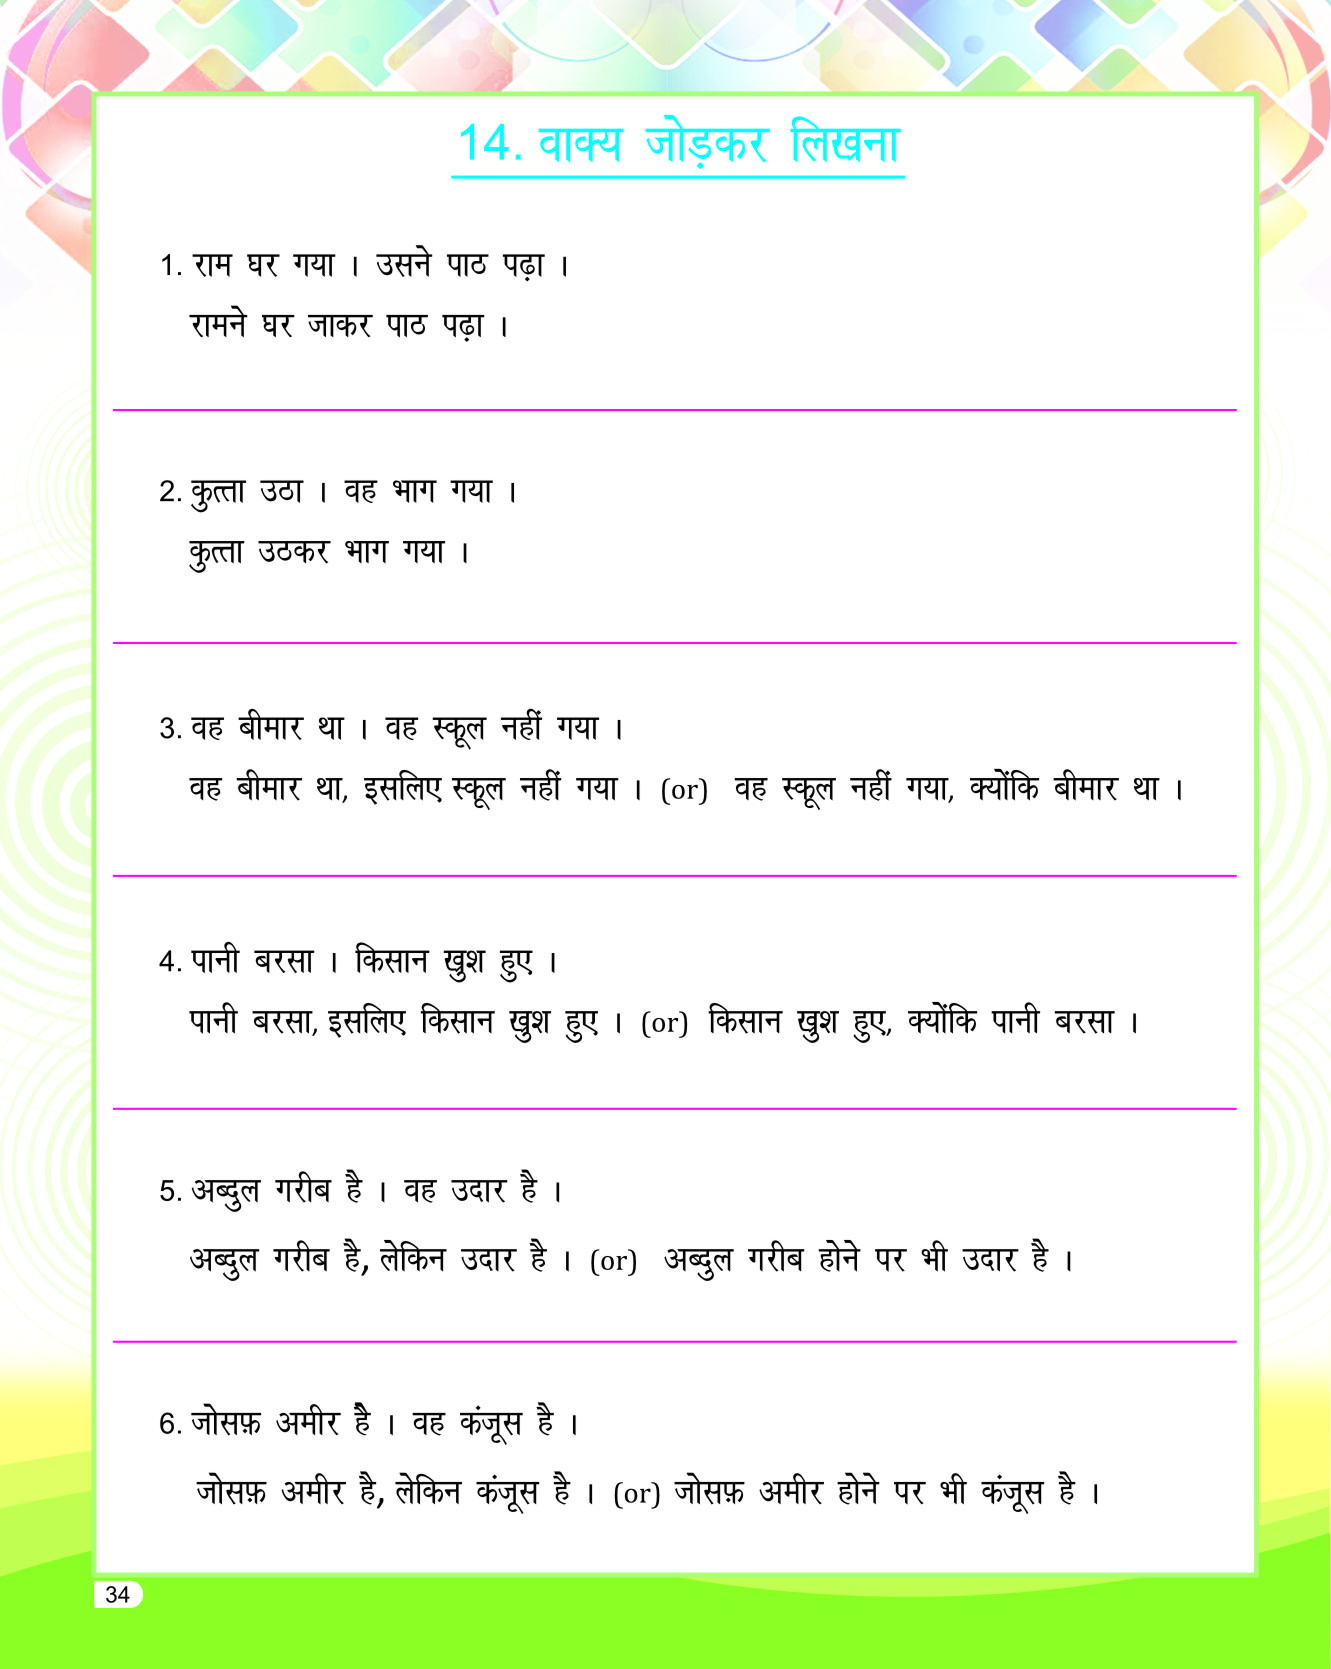 14. वाक्य जोड़कर लिखना
1. राम घर गया । उसने पाठ पढ़ा ।
रामने घर जाकर पाठ पढ़ा ।
2. कुत्ता उठा । वह भाग गया ।
कुत्ता उठकर भाग गया ।
3. वह बीमार था । वह स्कूल नहीं गया ।
वह बीमार था, इसलिए स्कूल नहीं गया । (or) वह स्कूल नहीं गया, क्योंकि बीमार था ।
4. पानी बरसा । किसान खुश हुए ।
पानी बरसा, इसलिए किसान खुश हुए । (or) किसान खुश हुए, क्योंकि पानी बरसा ।
5. अब्दुल गरीब है । वह उदार है ।
अब्दुल गरीब है, लेकिन उदार है । (or) अब्दुल गरीब होने पर भी उदार है ।
6. जोसफ़ अमीर है । वह कंजूस है ।
जोसफ़ अमीर है, लेकिन कंजूस है । (or) जोसफ़ अमीर होने पर भी कंजूस है ।
34